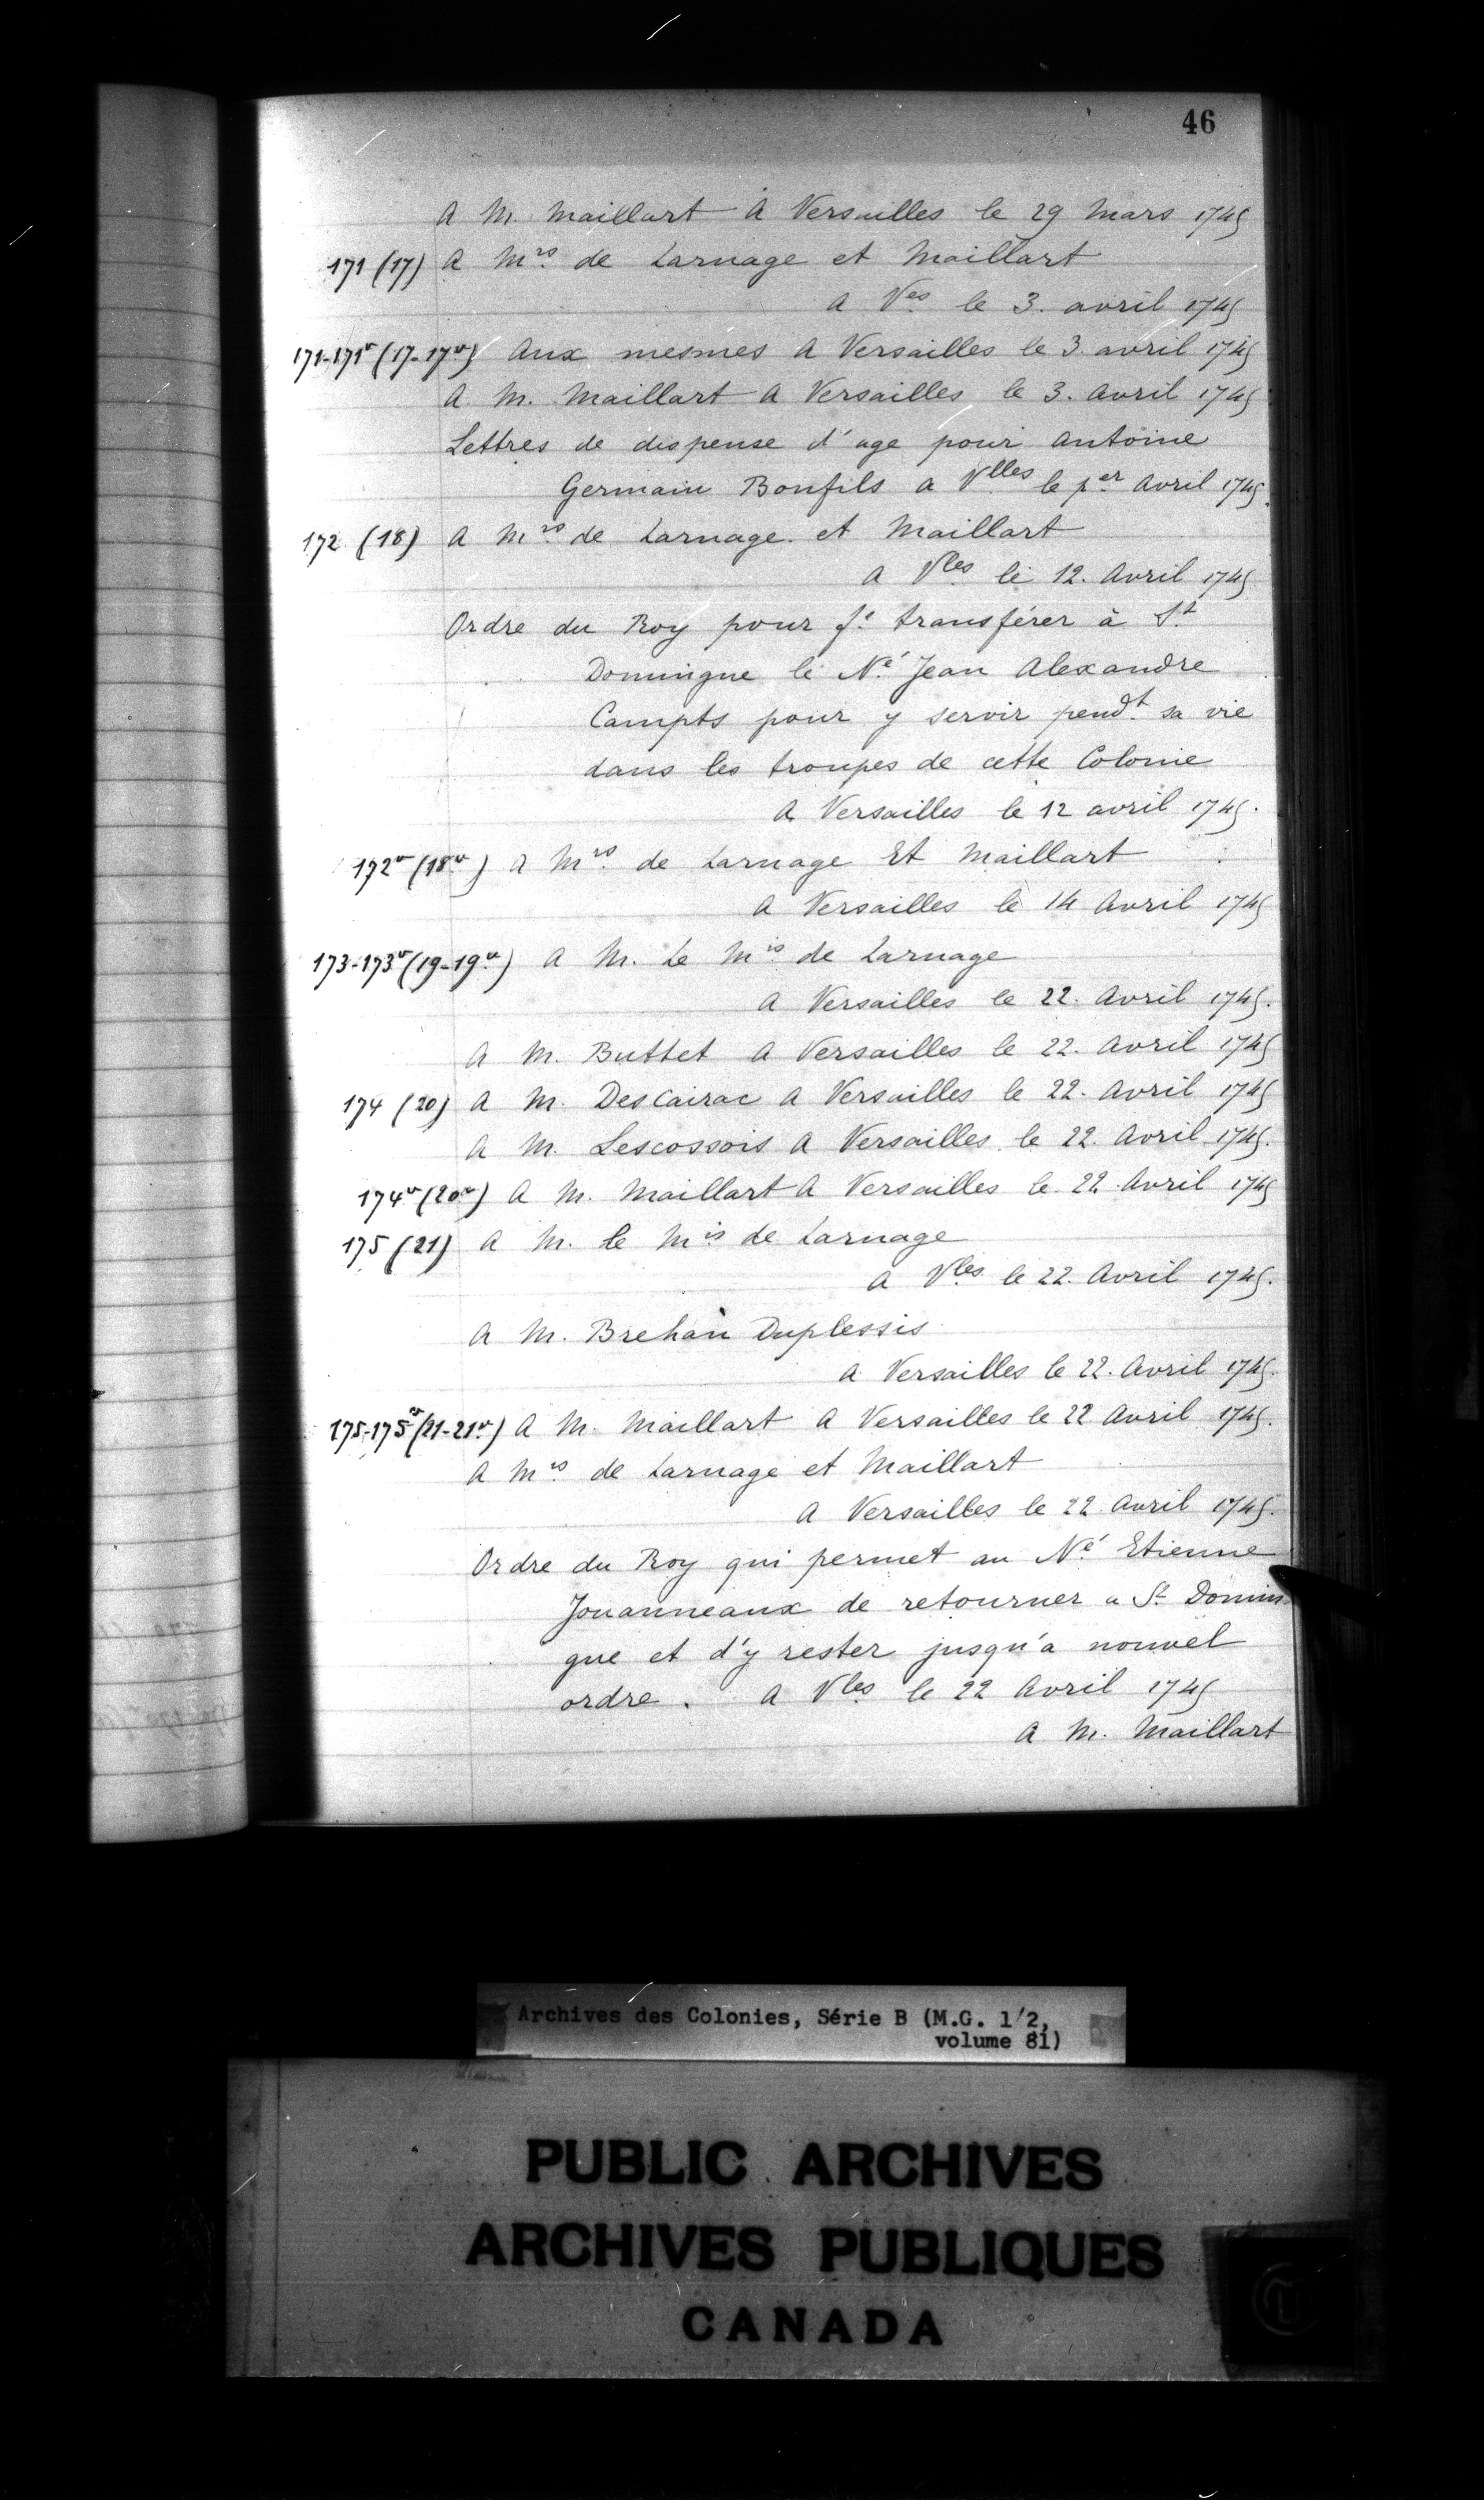 46
A M. Maillart A Versailles le 29 Mars 1745
171 (17) A Mrs. de Larnage et Maillart
a Ves le 3. avril 1745
171-171v (17-17v) Aux mesmes A Versailles le 3. avril 1745
A. M. Maillart A Versailles le 3. Avril 1745
Lettres de dispense d'age pour Antoine
Germain Bonfils a Vlles le per Avril 1745.
172 (18) A Mrs. de Larnage et Maillart
a Vles le 12. Avril 1745
Ordre du Roy pour fe. transférer à St.
Domingue le Né. Jean Alexandre
Campts pour y servir pendt. sa vie
dans les troupes de cette Colonie
A Versailles le 12 avril 1745.
172v (18v) a Mrs. de Larnage Et Maillart
A Versailles le 14 Avril 1745
173-173v (19-19v) A M. Le Mis de Larnage
A Versailles le 22. Avril 1745.
A M. Buttet A Versailles le 22. Avril 1745
174 (20) A M. DesCairac A Versailles le 22. Avril 1745
A M. Lescossois A Versailles le 22. Avril 1745.
174v (20v) A M. Maillart A Versailles le 22 Avril 1745
175 (21) A M. le Mis de Larnage
a Vles le 22. Avril 1745.
A M. Brehan Duplessis
A Versailles le 22. Avril 1745.
175-175v (21-21v) A M. Maillart A Versailles le 22 Avril 1745.
A Mrs de Larnage et Maillart
A Versailles le 22 Avril 1745.
Ordre du Roy qui permet au Né. Etienne
Jouanneaux de retourner a St. Domin-
gue et d'y rester jusqu'a nouvel
ordre. A Vles le 22 Avril 1745
A M. Maillart
Archives des Colonies, Série B (M.G. 1/2,
volume 81)
PUBLIC ARCHIVES
ARCHIVES PUBLIQUES
CANADA